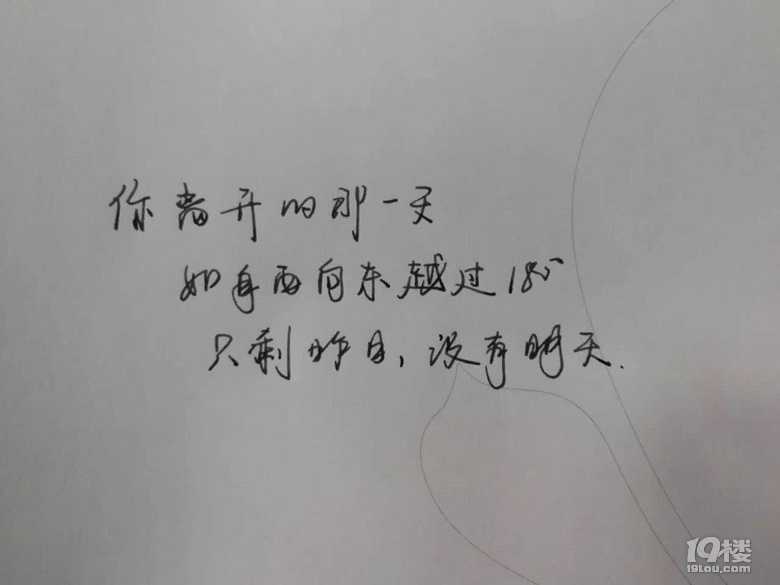 你离开的那一天
如自西向东越过180°
只剩昨日，没有明天.
19楼
19lou.com